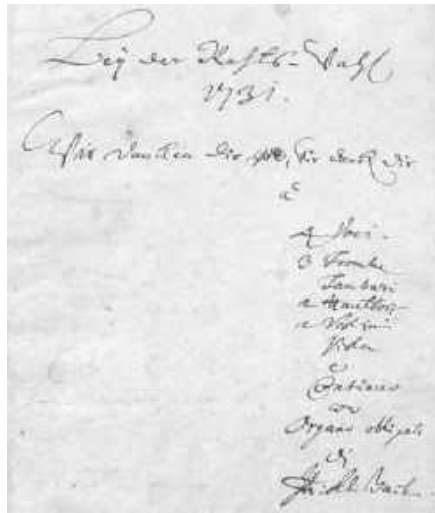 Bey der Rahts-Wahl
1731.
Wir dancken dir Gott, wir danck dir
à
4 Voci.
3 Trombe
Tamburi
2 Hautbois
2 Violini
Viola
e
Continuo
con
Organo obligato
di
J. S. Bach.